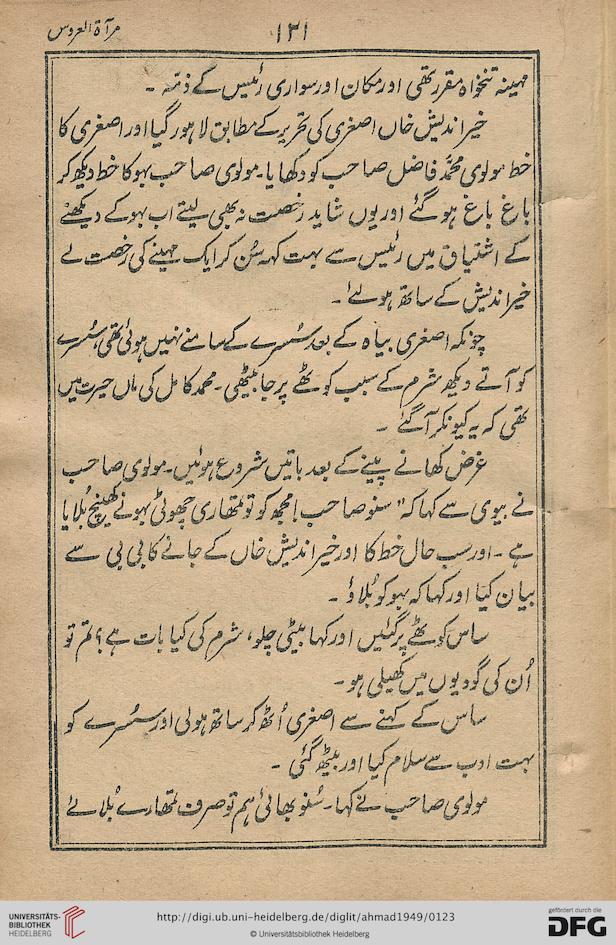 مرآۃ العروس
۱۳۱
مہینہ تنخواہ مقرر تھی اور مکان اور سواری رئیس کے ذمّہ۔
خیر اندیش خاں اصغری کی تحریر کے مطابق لاہور گیا اور اصغری کا
خط مولوی محمّد فاضل صاحب کو دکھایا۔ مولوی صاحب بہو کا خط دیکھ کر
باغ باغ ہو گئے اور یوں شاید رخصت نہ بھی لیتے اب بہو کے دیکھنے
کے اشتیاق میں رئیس سے بہت کہہ سُن کر ایک مہینے کی رخصت لے
خیر اندیش کے ساتھ ہو لئے۔
چونکہ اصغری بیاہ کے بعد سُسرے کے سامنے نہیں ہوئی تھی، سُسرے
کو آتے دیکھ شرم کے سبب کوٹھے پر جا بیٹھی۔ محمد کامل کی ماں حیرت میں
تھی کہ یہ کیونکر آ گئے۔
غرض کھانے پینے کے بعد باتیں شروع ہوئیں۔ مولوی صاحب
نے بیوی سے کہا کہ "سنو صاحب! مجھ کو تو تمھاری چھوٹی بہو نے کھینچ بُلایا
ہے۔ اور سب حال خط کا اور خیر اندیش خاں کے جانے کا بی بی سے
بیان کیا اور کہا کہ بہو کو بُلاؤ۔
ساس کوٹھے پر گئیں اور کہا بیٹی چلو، شرم کی کیا بات ہے؟ تم تو
اُن کی گودیوں میں کھیلی ہو۔
ساس کے کہنے سے اصغری اُٹھ کر ساتھ ہو لی اور سسرے کو
بہت ادب سے سلام کیا اور بیٹھ گئی۔
مولوی صاحب نے کہا۔ سُنو بھائی! ہم تو صرف تمھارے بُلائے
UNIVERSITÄTS-
BIBLIOTHEK
HEIDELBERG
http://digi.ub.uni-heidelberg.de/diglit/ahmad1949/0123
© Universitätsbibliothek Heidelberg
gefördert durch die
DFG